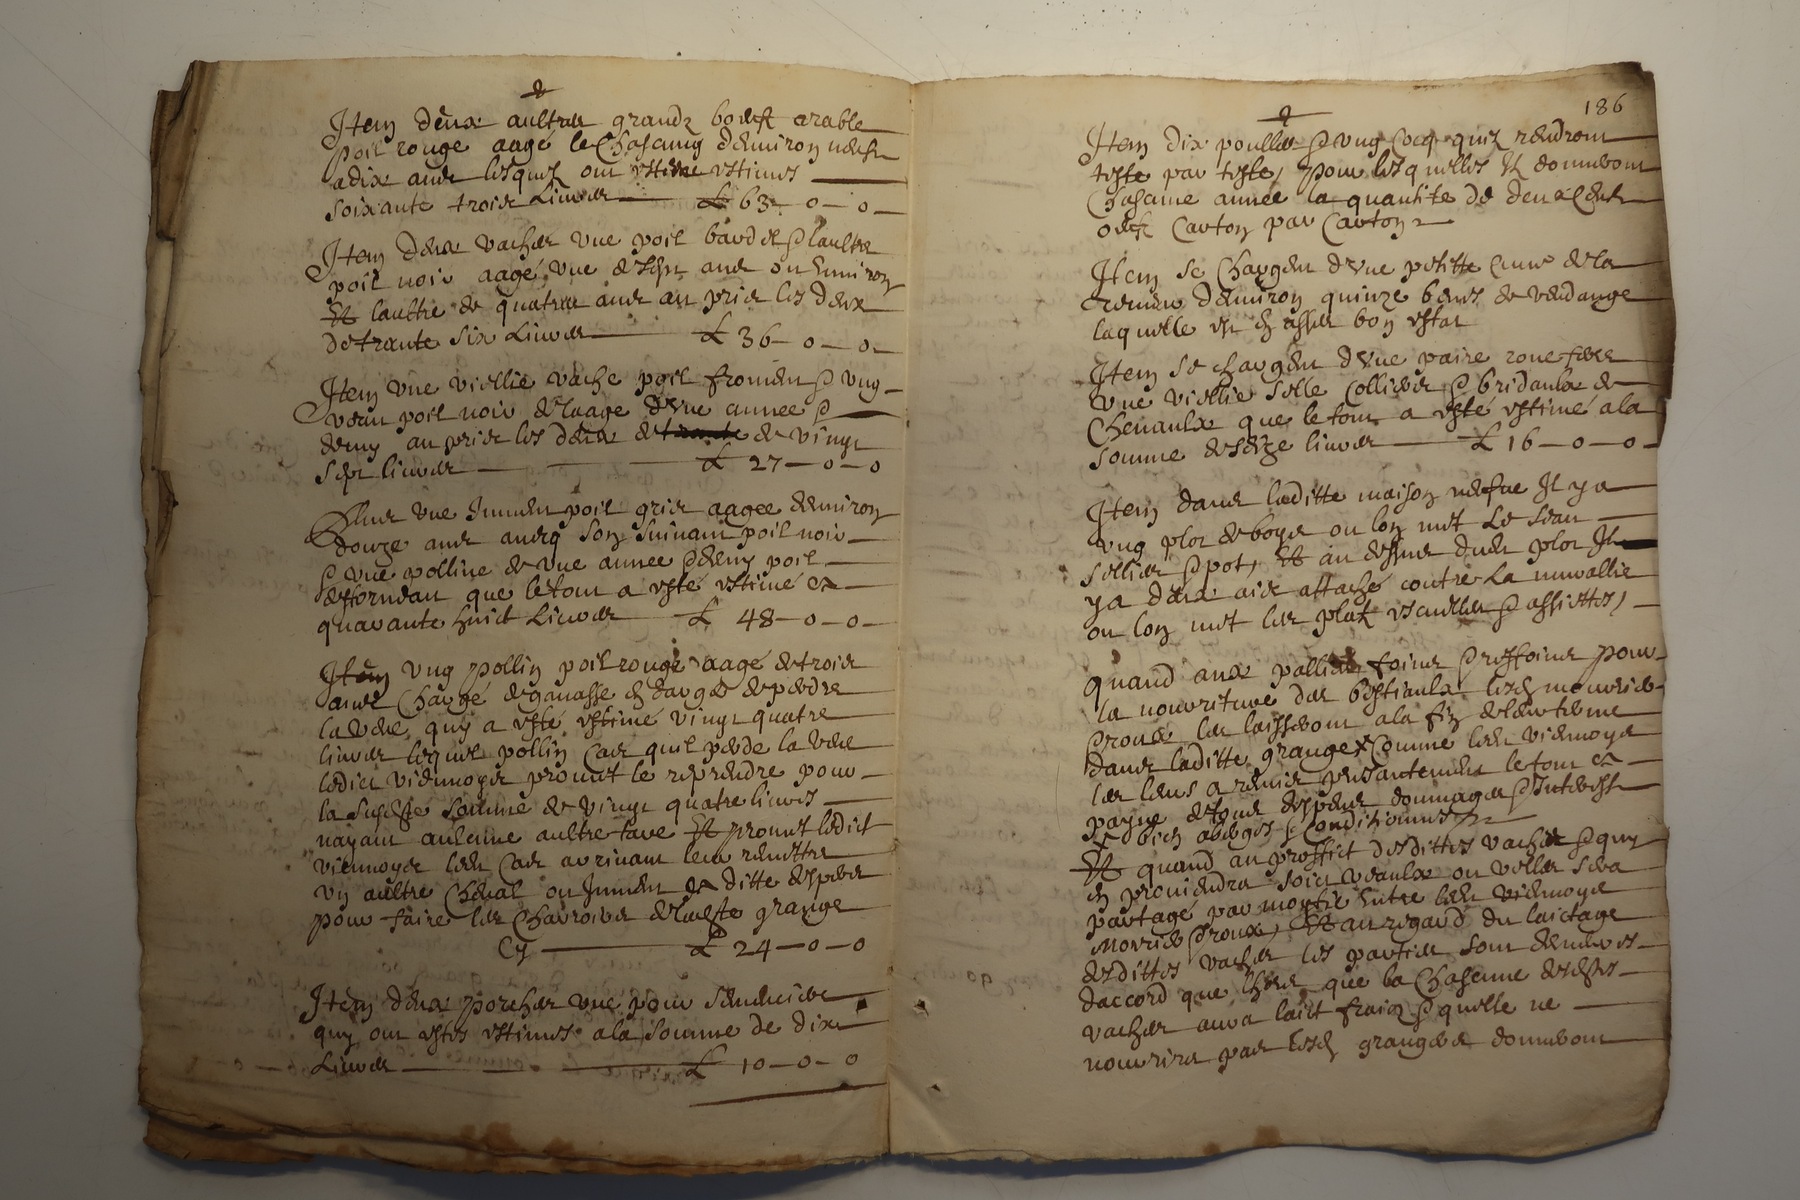 Item deux aultres grandz boeufz arable
poil rouge aagé le Chascung denviron neufz
a dix ans lesquelz ont estimes
soixante trois Livres £ 63 - 0 - 0
Item deux vaches une poil bardel & laultre
poil noir aagé une de sept ans ou environ
Et laultre de quatre ans au pris les deux
de trante six Livres £ 36 - 0 - 0
Item une viellie vache poil froment & ung
veau poil noir de laage d'une annee &
demy au pris les deux de vingt
sept livres £ 27 - 0 - 0
Plus une Jument poil gris aagée denviron
douze ans avecq son suivant poil noir
& une polline de une annee & demy poil
destorneau que le tout a esté estimé
quarante huict Livres £ 48 - 0 - 0
Item ung pollin poil rouge aagé de trois
ans Chargé de ganasse en danger de perdre
la veue, quy a esté estimé vingt quatre
livres lequel pollin Cas quil perde la veue
ledict viennoys promet le reprendre pour
la susdite somme de vingt quatre livres
nayant aulcune aultre tare Et promet ledict
viennoys audit Cas arrivant leur remettre
un aultre Cheval ou Jument
pour faire les Charrois de ladite grange
Cy £ 24 - 0 - 0
Item deux porches une pour
quy ont estés estimés a la somme de dix
Livres £ 10 - 0 - 0
186
Item dix poulles & ung Cocq quilz rendront
teste par teste, pour lesquelles Ilz donneront
Chascune année la quantité de deux Cent
oeufz Carton par Carton
Item se Chargent d'une petitte Cuve de la
teneur denviron quinze bennes de vendange
laquelle est en asses bon estat
Item se chargent d'une paire roues
une viellie selle Collier & bridaulx de
Chevaulx que le tout a esté estimé a la
somme de seize livres £ 16 - 0 - 0
Item dans laditte maison neufve Il y a
ung plot de boys ou lon met Le seau
sellier & pot, Et au dessus dudit plot Il
y a deux ais attaché contre La muraillie
ou lon met les platz escuelles & assiettes,
Quand aux pallies foins & reffoins pour
la nourriture des bestiaulx lesdits mourier
Croux les laisseront a la fin de leur terme
dans laditte grange Comme ledit viennoys
les leurs a remis presentement le tout a
payne de tous despens dommages & Interest
& bien abreges & Conditionnés
Et quand au proffict desdittes vaches & quy
en proviendra soit veaulx ou velles sera
partagé par moytié Entre ledit viennoys
Mourier Croux, Et au regard du laictage
desdittes vaches les parties sont demeurés
daccord que lhors que la Chascune desdittes
vaches aura laict fraiz & quelle ne
nourrira pas lesdits grangers donneront